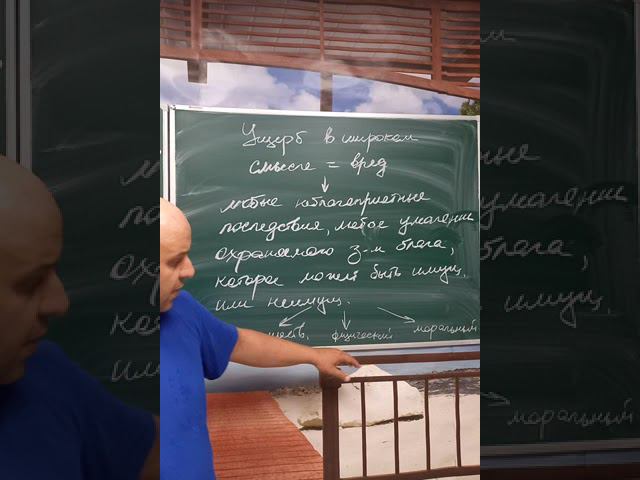 Ущерб в широком
смысле = вред
любые неблагоприятные
последствия, любое умаление
охраняемого з-м блага,
которое может быть имущ.
или неимущ.
физический моральный